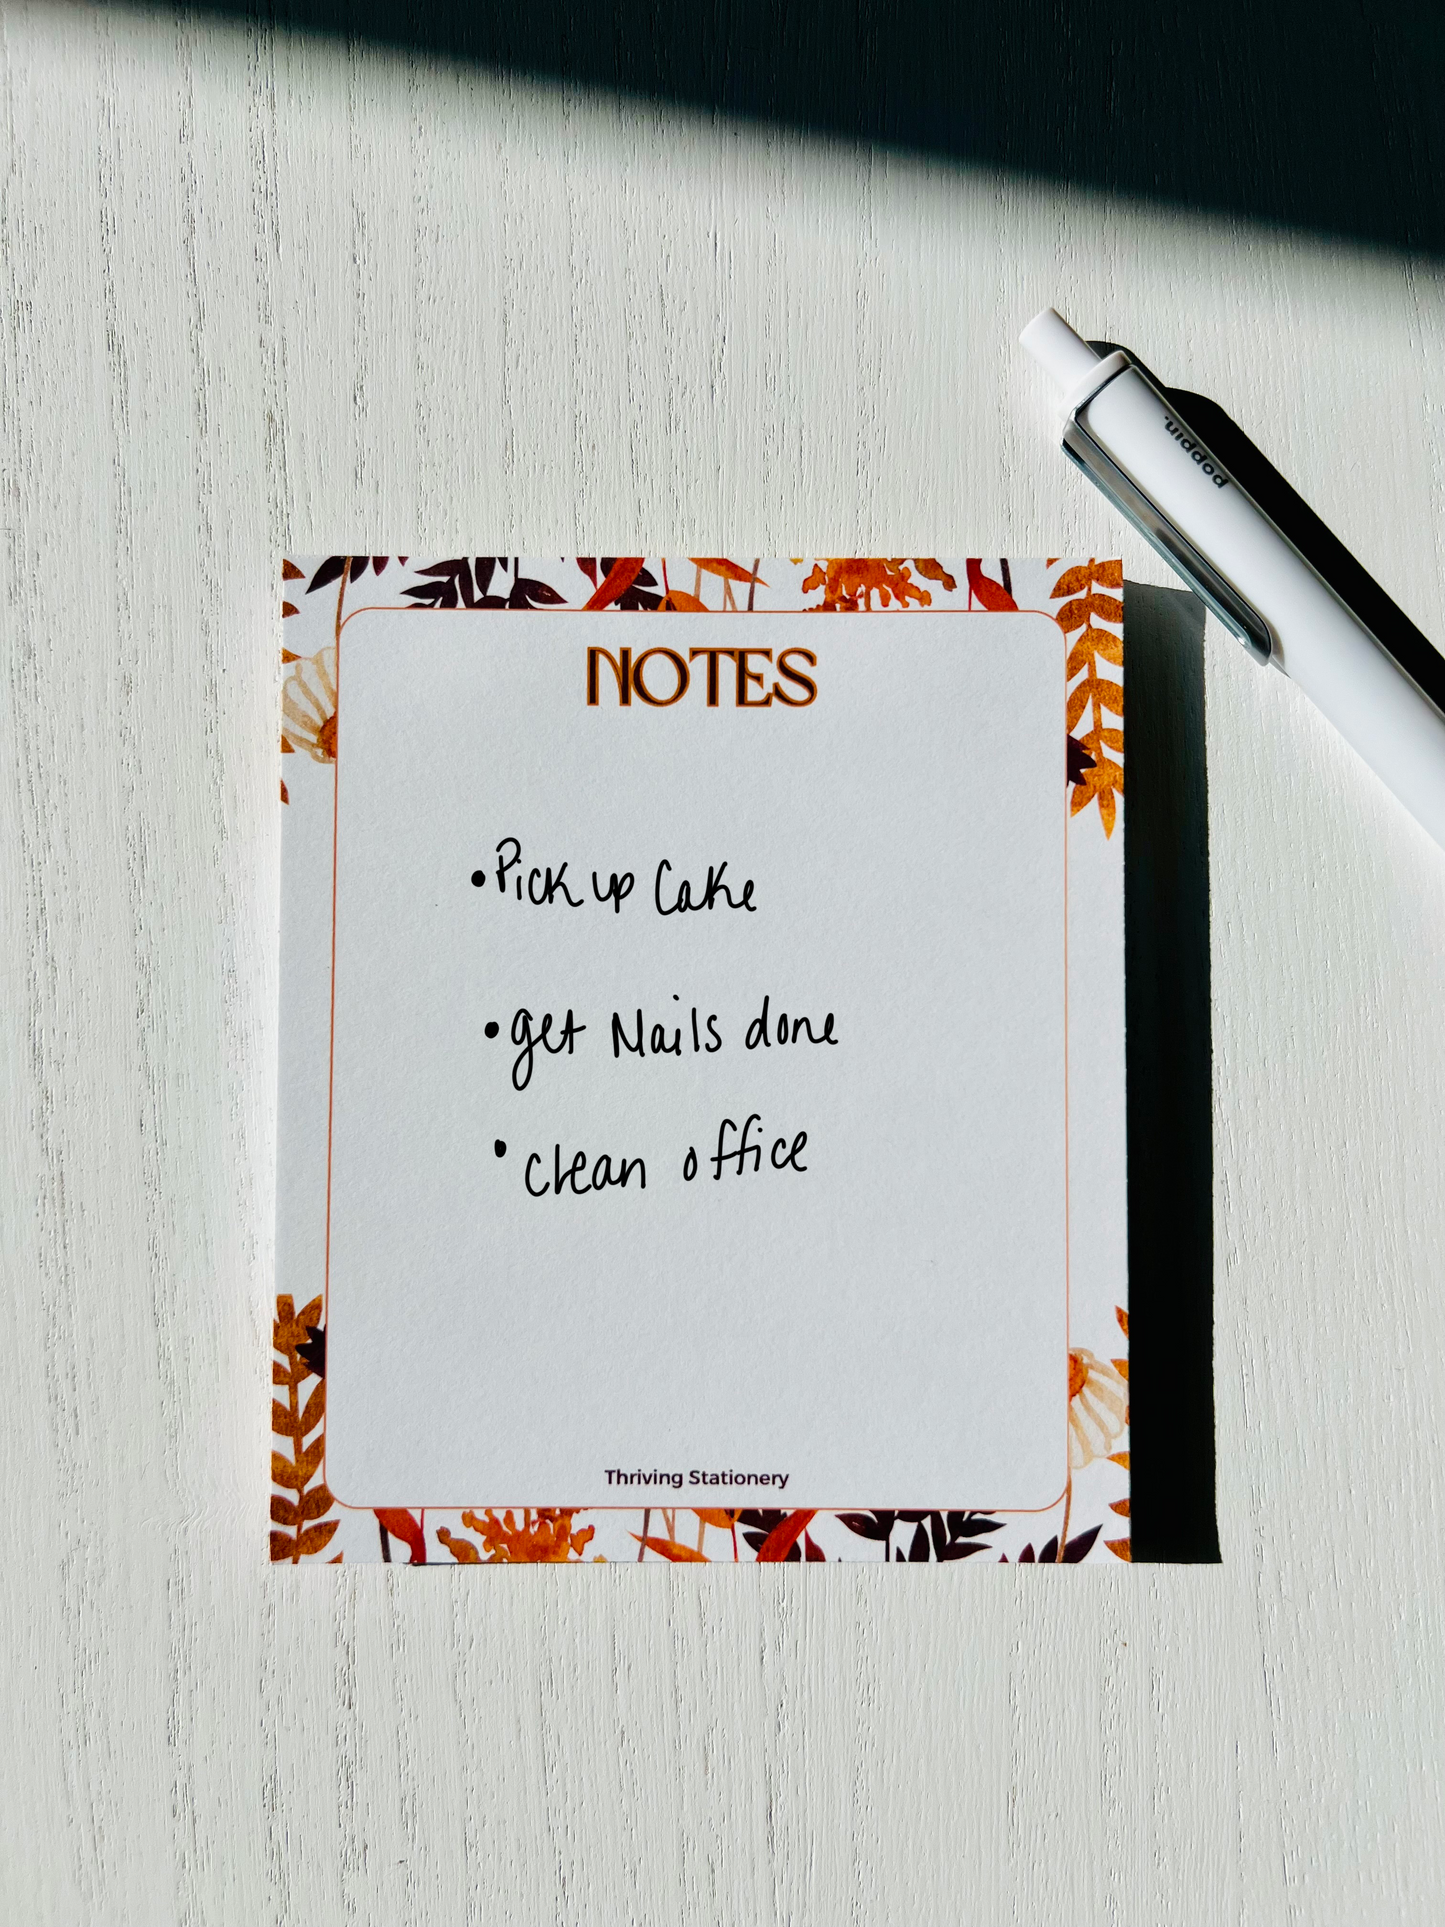 poppin.
NOTES
•Pick up Cake
•get Nails done
•clean office
Thriving Stationery